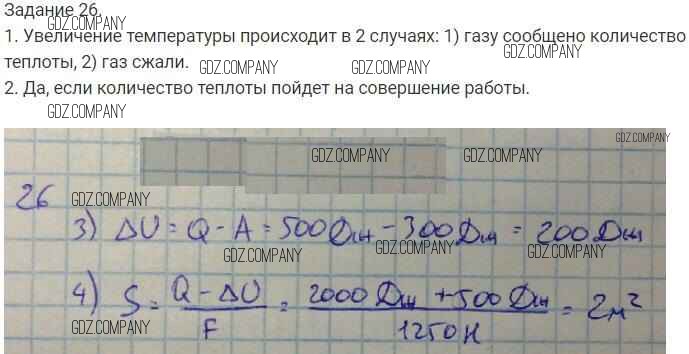 Задание 26.
GDZ.COMPANY
1. Увеличение температуры происходит в 2 случаях: 1) газу сообщено количество
GDZ.COMPANY GDZ.COMPANY
теплоты, 2) газ сжали.
GDZ.COMPANY GDZ.COMPANY
2. Да, если количество теплоты пойдет на совершение работы.
GDZ.COMPANY
GDZ.COMPANY
GDZ.COMPANY GDZ.COMPANY
26
GDZ.COMPANY
3) ΔU = Q - A = 500 Дж - 300 Дж = 200 Дж
GDZ.COMPANY GDZ.COMPANY
GDZ.COMPANY
4) S = (Q - ΔU) / F = (2000 Дж + 500 Дж) / 1250 Н = 2 м²
GDZ.COMPANY GDZ.COMPANY
GDZ.COMPANY GDZ.COMPANY